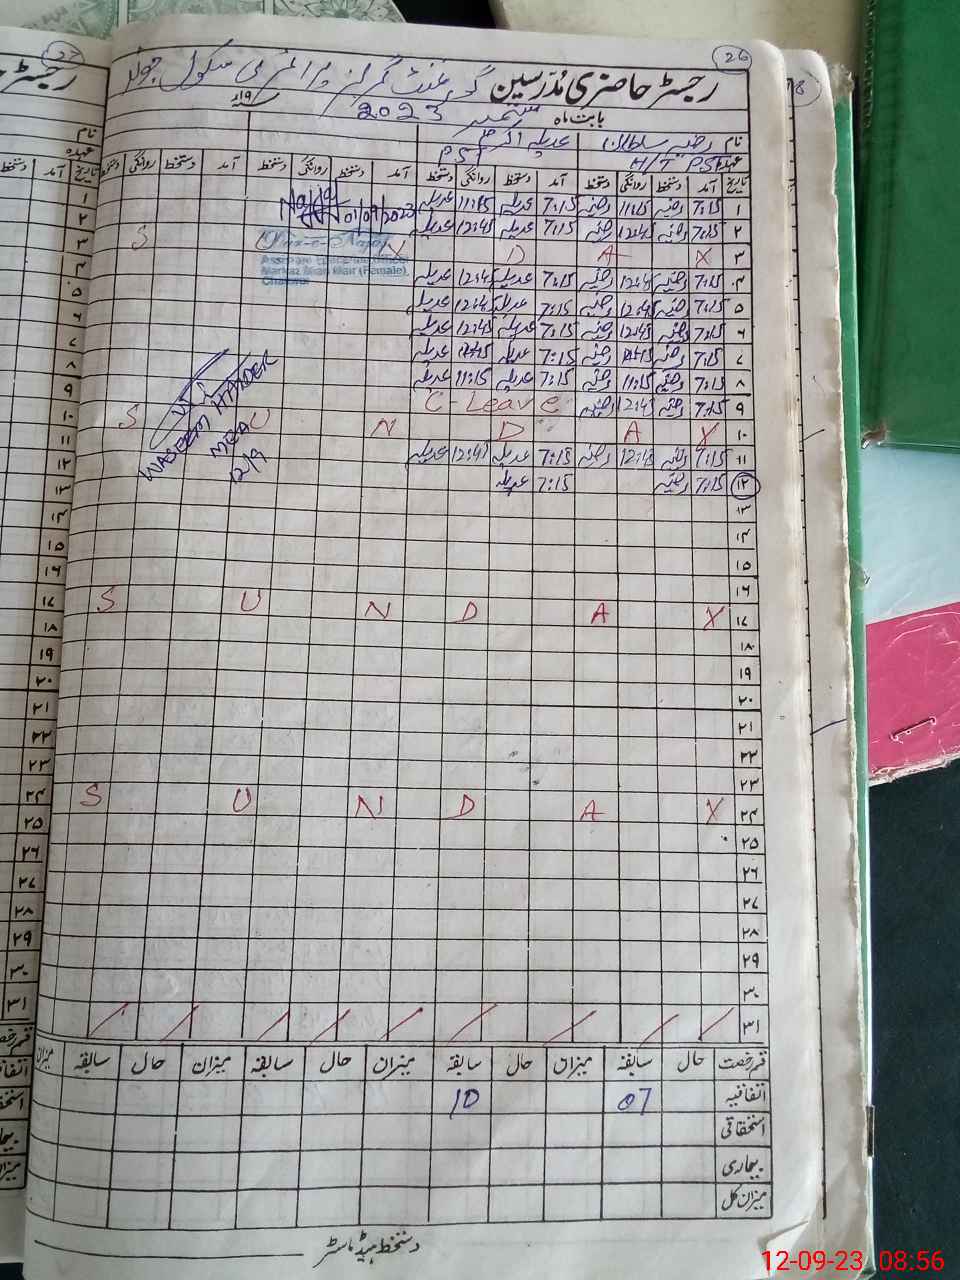 26
رجسٹر حاضری مدرسین گورنمنٹ گرلز پرائمری سکول
بابت ماہ ستمبر 2023 ۱۹ء
نام رضیہ سلطانہ عدیلہ اکرم
عہدہ H/T PST PST
تاریخ آمد دستخط روانگی دستخط آمد دستخط روانگی دستخط آمد دستخط روانگی دستخط آمد دستخط روانگی
۱ 7:15 رضیہ 11:15 رضیہ 7:15 عدیلہ 11:15 عدیلہ
01/09/2023
۲ 7:15 رضیہ 12:45 رضیہ 7:15 عدیلہ 12:45 عدیلہ
۳ S N D A Y
Assistant Education Officer
Markaz Mian Mir (Female),
۴ 7:15 رضیہ 12:45 رضیہ 7:15 عدیلہ 12:45 عدیلہ
۵ 7:15 رضیہ 12:45 رضیہ 7:15 عدیلہ 12:45 عدیلہ
۶ 7:15 رضیہ 12:45 رضیہ 7:15 عدیلہ 12:45 عدیلہ
۷ 7:15 رضیہ رضیہ 7:15 عدیلہ عدیلہ
۸ 7:15 رضیہ 11:15 رضیہ 7:15 عدیلہ 11:15 عدیلہ
۹ 7:15 رضیہ 12:45 رضیہ C-Leave
۱۰ S U N D A Y
WASEEM HAIDER
MEA
12/9
۱۱ 7:15 رضیہ 12:45 رضیہ 7:15 عدیلہ 12:45 عدیلہ
۱۲ 7:15 رضیہ 7:15 عدیلہ
۱۳
۱۴
۱۵
۱۶
۱۷ S U N D A Y
۱۸
۱۹
۲۰
۲۱
۲۲
۲۳
۲۴ S U N D A Y
۲۵
۲۶
۲۷
۲۸
۲۹
۳۰
۳۱
قسم رخصت حال سابقہ میزان حال سابقہ میزان حال سابقہ میزان حال سابقہ
اتفاقیہ 07 10
استحقاقی
بیماری
میزان کل
دستخط ہیڈ ماسٹر
12-09-23 08:56